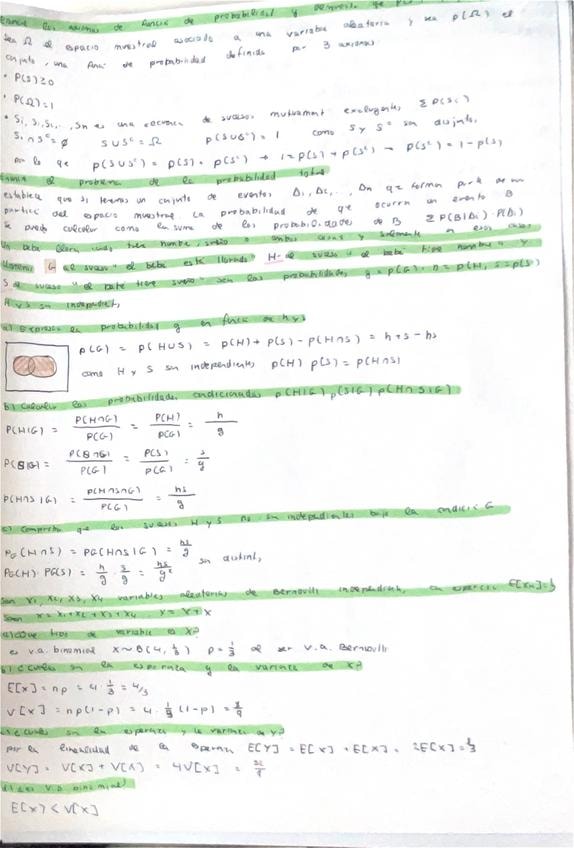 Enuncia los axiomas de función de probabilidad y demuestra que
Sea Ω el espacio muestral asociado a una variable aleatoria y sea p(Ω) el
conjunto, una función de probabilidad definida por 3 axiomas
• P(S) ≥ 0
• P(Ω) = 1
• S1, S2, ..., Sn es una secuencia de sucesos mutuamente excluyentes Σ P(Si)
S ∩ Sᶜ = ∅ S ∪ Sᶜ = Ω P(S∪Sᶜ) = 1 como S y Sᶜ son disjuntos
por lo que P(S∪Sᶜ) = P(S) + P(Sᶜ) → 1 = P(S) + P(Sᶜ) → P(Sᶜ) = 1 - P(S)
Enuncia el problema de la probabilidad total
establece que si tenemos un conjunto de eventos A1, A2, ..., An que forman parte de una
partición del espacio muestral. La probabilidad de que ocurra un evento B
se puede calcular como la suma de las probabilidades de B Σ P(B|Ai)·P(Ai)
Un bebe llora cuando tiene hambre, sueño o ambas cosas y solamente en esos casos
llamemos G al suceso "el bebé está llorando" H- el suceso "el bebé tiene hambre" y
S el suceso "el bebé tiene sueño" sean las probabilidades g = p(G), h = p(H), s = p(S)
H y S son independientes
a) Expresa la probabilidad g en función de h y s
P(G) = P(H∪S) = P(H) + P(S) - P(H∩S) = h + s - hs
como H y S son independientes P(H) P(S) = P(H∩S)
b) Calcular las probabilidades condicionadas p(H|G) p(S|G) p(H∩S|G)
P(H|G) = P(H∩G)/P(G) = P(H)/P(G) = h/g
P(S|G) = P(S∩G)/P(G) = P(S)/P(G) = s/g
P(H∩S|G) = P(H∩S∩G)/P(G) = hs/g
c) Comprueba que los sucesos H y S no son independientes bajo la condición G
PG(H∩S) = PG(H∩S|G) = hs/g
PG(H)·PG(S) = h/g · s/g = hs/g² son distintos
Sean X1, X2, X3, X4 variables aleatorias de Bernoulli independientes, con esperanza E[Xi] = 1/3
Sean X = X1+X2+X3+X4 y Y = X+X
a) ¿Que tipo de variable es X?
es v.a. binomial X~B(4, 1/3) p = 1/3 al ser v.a. Bernoulli
b) ¿Cuales son la esperanza y la varianza de X?
E[X] = np = 4 · 1/3 = 4/3
V[X] = np(1-p) = 4 · 1/3 (1-p) = 8/9
c) ¿Cuales son la esperanza y la varianza de Y?
por la linealidad de la esperanza E[Y] = E[X] + E[X] = 2E[X] = 8/3
V[Y] = V[X] + V[X] = 4V[X] = 32/9
E[X] < V[X]